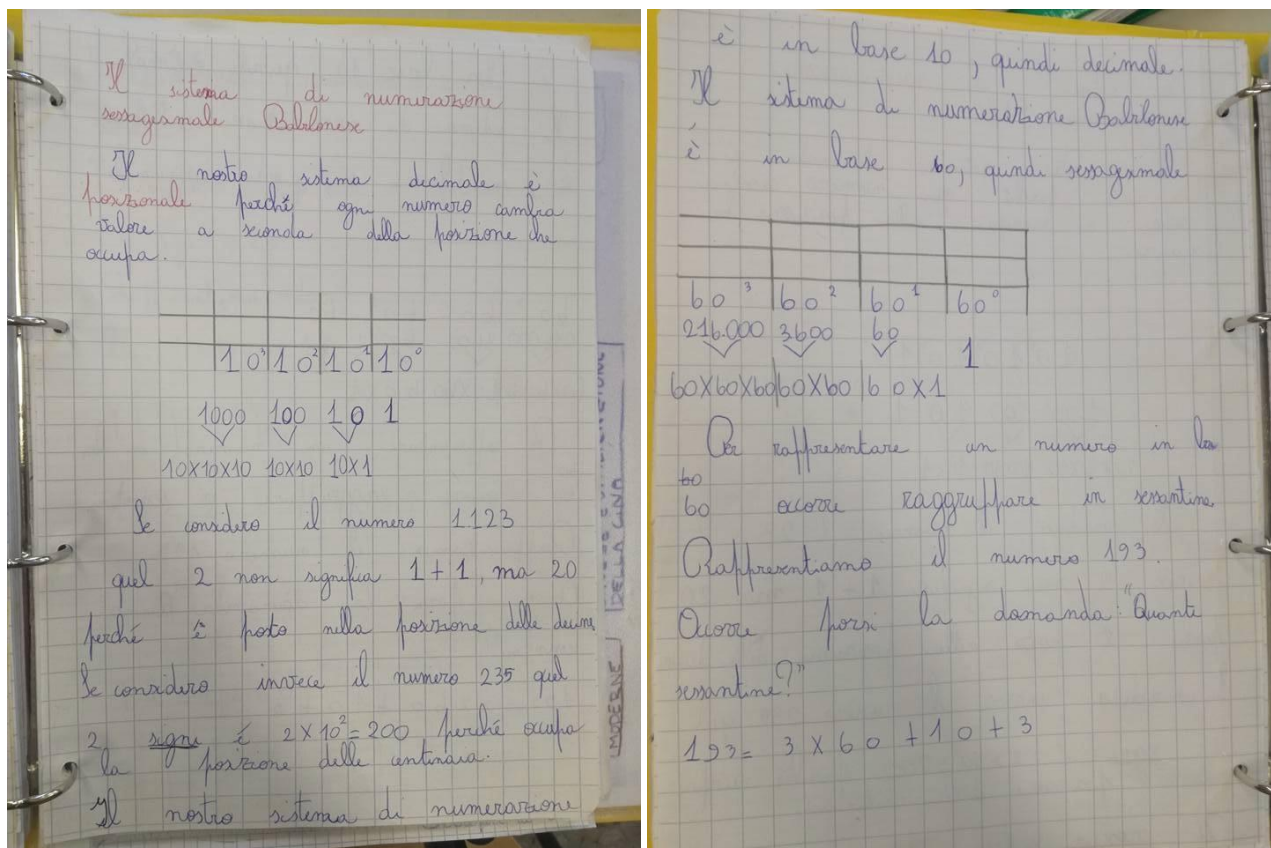 Il sistema di numerazione
sessagesimale Babilonese
Il nostro sistema decimale è
posizionale perché ogni numero cambia
valore a seconda della posizione che
occupa.
10³ 10² 10¹ 10⁰
1000 100 10 1
10X10X10 10X10 10X1
Se considero il numero 1123
quel 2 non significa 1+1, ma 20
perché è posto nella posizione delle decine
Se considero invece il numero 235 quel
2 signi è 2 X 10²=200 perché occupa
la posizione delle centinaia.
Il nostro sistema di numerazione
MODERNE DELLA CINA
è in base 10, quindi decimale.
Il sistema di numerazione Babilonese
è in base 60, quindi sessagesimale
60³ 60² 60¹ 60⁰
216.000 3600 60 1
60X60X60 60X60 60X1
Per rappresentare un numero in ba
60
60 occorre raggruppare in sessantine
Rappresentiamo il numero 193.
Occorre porsi la domanda: "Quante
sessantine?"
193= 3 X 60 +10+3